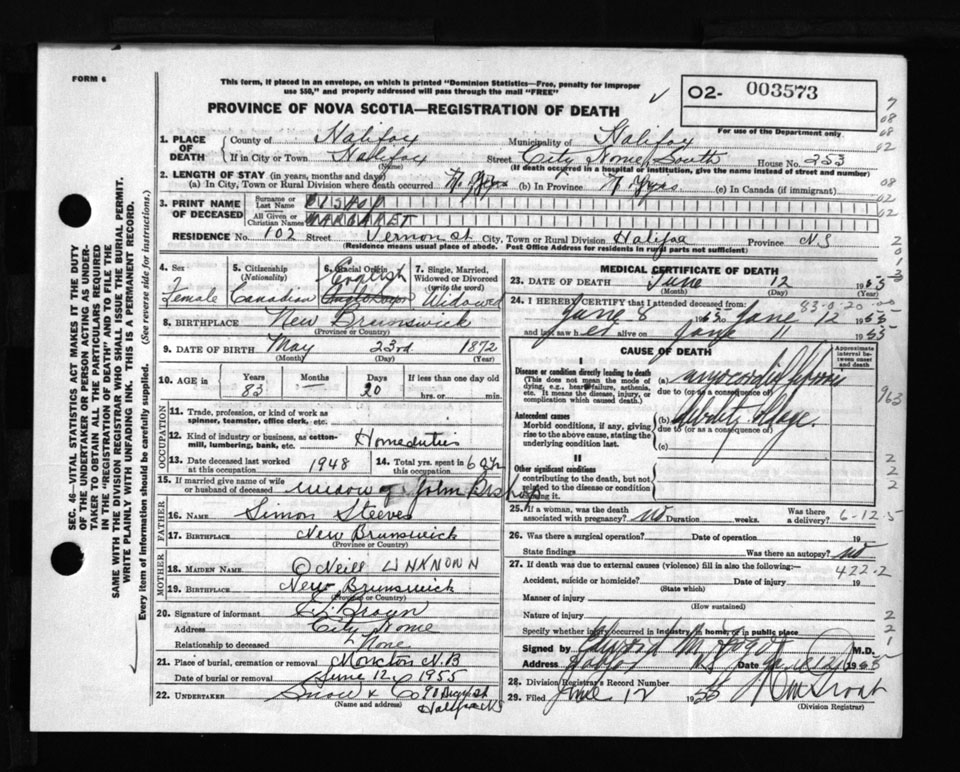 FORM 6
This form, if placed in an envelope, on which is printed "Dominion Statistics—Free, penalty for improper
use $50," and properly addressed will pass through the mail "FREE"
PROVINCE OF NOVA SCOTIA—REGISTRATION OF DEATH
O2- 003573
For use of the Department only
1. PLACE OF DEATH
County of Halifax Municipality of Halifax
If in City or Town Halifax Street City Home South House No. 253
(Name) (If death occurred in a hospital or institution, give the name instead of street and number)
2. LENGTH OF STAY (in years, months and days)
(a) In City, Town or Rural Division where death occurred (b) In Province (c) In Canada (if immigrant)
3. PRINT NAME OF DECEASED
Surname or Last Name BISHOP
All Given or Christian Names MARGARET
RESIDENCE No. 102 Street Vernon St City, Town or Rural Division Halifax Province N.S
(Residence means usual place of abode. Post Office Address for residents in rural parts not sufficient)
4. Sex Female
5. Citizenship (Nationality) Canadian
6. Racial Origin English
7. Single, Married, Widowed or Divorced (write the word) Widowed
8. BIRTHPLACE New Brunswick
(Province or Country)
9. DATE OF BIRTH May 23rd 1872
(Month) (Day) (Year)
10. AGE in Years 83 Months Days 20 If less than one day old hrs. or min.
OCCUPATION
11. Trade, profession, or kind of work as spinner, teamster, office clerk, etc.
12. Kind of industry or business, as cotton-mill, lumbering, bank, etc. Homeduties
13. Date deceased last worked at this occupation 1948
14. Total yrs. spent in this occupation 60
15. If married give name of wife or husband of deceased widow of John Bishop
FATHER
16. NAME Simon Steeves
17. BIRTHPLACE New Brunswick
(Province or Country)
MOTHER
18. MAIDEN NAME O Neill UNKNOWN
19. BIRTHPLACE New Brunswick
(Province or Country)
20. Signature of informant
Address City Home
Relationship to deceased None
21. Place of burial, cremation or removal Moncton N.B
Date of burial or removal June 12 1955
22. UNDERTAKER Snow & Co 90 St
Halifax NS
(Name and address)
MEDICAL CERTIFICATE OF DEATH
23. DATE OF DEATH June 12 1955
(Month) (Day) (Year)
83-0-20-00
24. I HEREBY CERTIFY that I attended deceased from
June 8 to June 12 1955
and last saw her alive on June 11 1955
CAUSE OF DEATH
Approximate interval between onset and death
I
Disease or condition directly leading to death
(This does not mean the mode of dying, e.g., heart failure, asthenia, etc. It means the disease, injury, or complication which caused death.)
(a)
due to (or as a consequence of)
Antecedent causes
Morbid conditions, if any, giving rise to the above cause, stating the underlying condition last.
(b)
due to (or as a consequence of)
(c)
II
Other significant conditions
contributing to the death, but not related to the disease or condition causing it.
25. If a woman, was the death associated with pregnancy? no Duration weeks. Was there a delivery? 6-12-5
26. Was there a surgical operation? Date of operation 19
State findings Was there an autopsy? no
27. If death was due to external causes (violence) fill in also the following:—
422-2
Accident, suicide or homicide? Date of injury 19
(State which)
Manner of injury
(How sustained)
Nature of injury
Specify whether injury occurred in industry, in home, or in public place
Signed by M.D.
Address Date June 12 1955
28. Division Registrar's Record Number
29. Filed June 12 1955
(Division Registrar)
SEC. 46—VITAL STATISTICS ACT MAKES IT THE DUTY
OF THE UNDERTAKER OR PERSON ACTING AS UNDER-
TAKER TO OBTAIN ALL THE PARTICULARS REQUIRED
IN THE "REGISTRATION OF DEATH" AND TO FILE THE
SAME WITH THE DIVISION REGISTRAR WHO SHALL ISSUE THE BURIAL PERMIT.
WRITE PLAINLY WITH UNFADING INK. THIS IS A PERMANENT RECORD.
Every item of information should be carefully supplied. (See reverse side for instructions.)
7
08
08
02
08
02
02
2
0
1
3
963
2
2
2
2
2
1
2